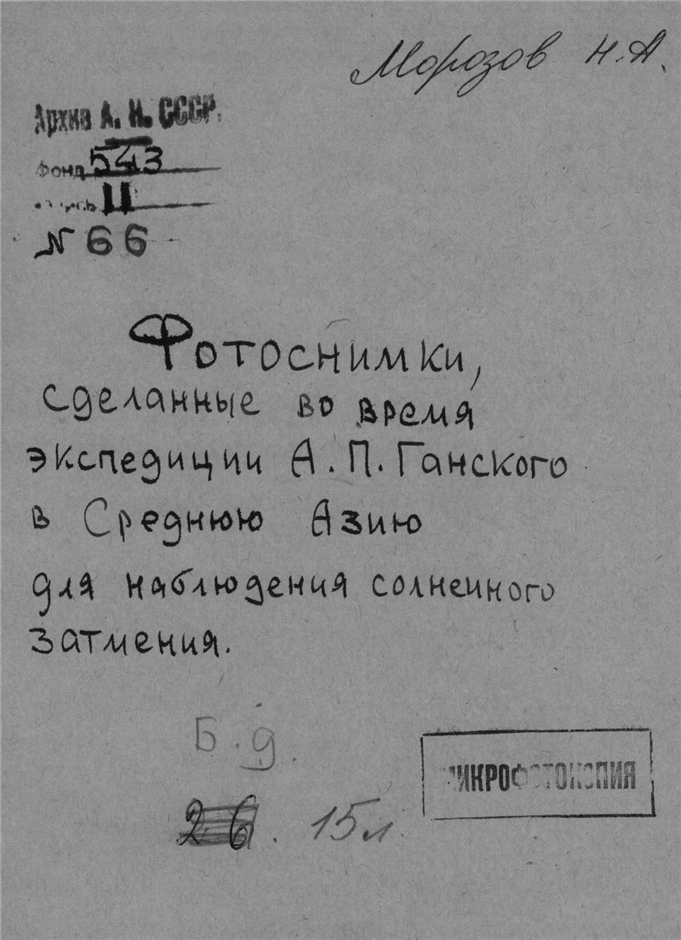 Морозов Н.А.
Архив А. Н. СССР.
Фонд 543
опись II
№ 66
Фотоснимки,
сделанные во время
экспедиции А.П. Ганского
в Среднюю Азию
для наблюдения солнечного
затмения.
Б.д.
26. 15 л.
МИКРОФОТОКОПИЯ